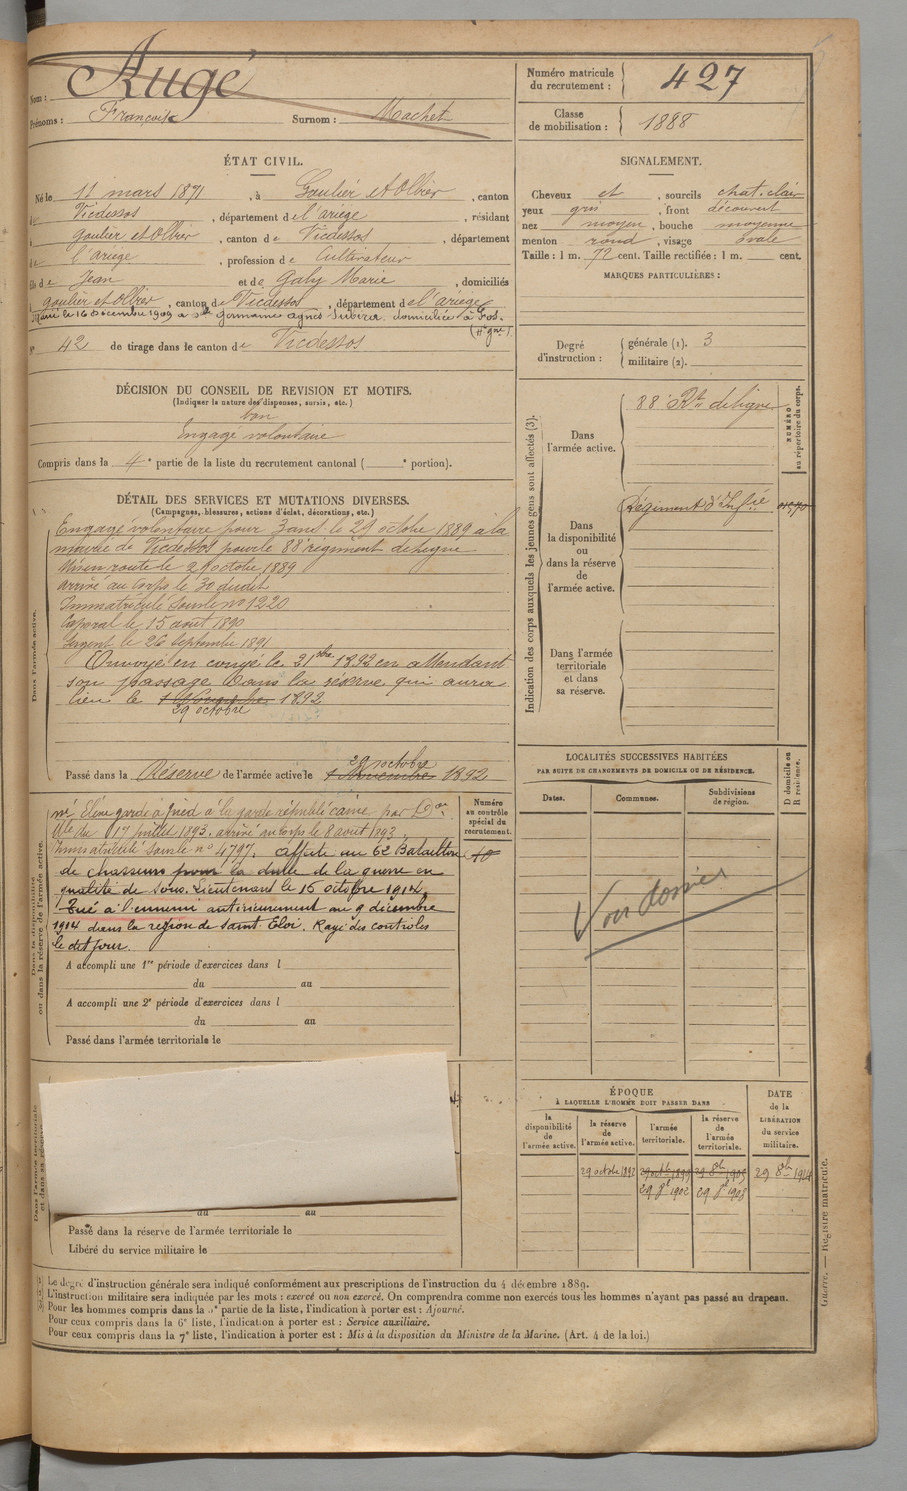 Nom : Augé
Prénoms : François Surnom : Machet
Numéro matricule du recrutement : 427
Classe de mobilisation : 1888
ÉTAT CIVIL.
Né le 11 mars 1871, à Goulier et Olbier, canton
de Vicdessos, département de l'ariège, résidant
à goulier et Olbier, canton de Vicdessos, département
de l'ariège, profession de Cultivateur
fils de Jean et de Galy Marie, domiciliés
à goulier et Olbier, canton de Vicdessos, département de l'ariège
Marié le 16 Décembre 1909 à Dlle germaine agnès domiciliée à Fos.
(Hte gne)
N° 42 de tirage dans le canton de Vicdessos
SIGNALEMENT.
Cheveux et, sourcils chat. clair
yeux gris, front découvert
nez moyen, bouche moyenne
menton rond, visage ovale
Taille : 1 m. 72 cent. Taille rectifiée : 1 m. cent.
MARQUES PARTICULIÈRES :
Degré d'instruction : générale (1). 3
militaire (2).
DÉCISION DU CONSEIL DE REVISION ET MOTIFS.
(Indiquer la nature des dispenses, sursis, etc.)
bon
Engagé volontaire
Compris dans la 4e partie de la liste du recrutement cantonal ( e portion).
DÉTAIL DES SERVICES ET MUTATIONS DIVERSES.
(Campagnes, blessures, actions d'éclat, décorations, etc.)
Dans l'armée active.
Engagé volontaire pour 3 ans le 29 octobre 1889 à la
mairie de Vicdessos pour le 88e régiment de ligne
Mis en route le 29 octobre 1889
arrivé au Corps le 30 dudit
Immatriculé sous le no 1220
Caporal le 15 août 1890
Sergent le 26 Septembre 1891
Envoyé en congé le 21 1892 en attendant
son passage dans la réserve qui aura
lieu le 1 Novembre 1892
29 octobre
29 octobre
Passé dans la Réserve de l'armée active le 1 Novembre 1892
Dans la disponibilité
ou dans la réserve de l'armée active.
né Elève garde à pied à la garde républicaine par Don
Mlle du 17 juillet 1893. arrivé au corps le 8 août 1893.
Immatriculé sous le no 4797. Affecté au 62 Bataillon
de chasseurs pour la durée de la guerre en
qualité de Sous. Lieutenant le 15 octobre 1914
Tué à l'ennemi antérieurement au 9 décembre
1914 dans la région de Saint. Eloi. Rayé des contrôles
le dit jour.
Numéro
au contrôle
spécial du
recrutement.
A accompli une 1re période d'exercices dans l
du au
A accompli une 2e période d'exercices dans l
du au
Passé dans l'armée territoriale le
Dans l'armée territoriale
et dans sa réserve
du au
Passé dans la réserve de l'armée territoriale le
Libéré du service militaire le
Indication des corps auxquels les jeunes gens sont affectés (3).
Dans
l'armée active.
88e Rt de ligne
NUMÉRO
au répertoire du corps.
Dans
la disponibilité
ou
dans la réserve
de
l'armée active.
Régiment d'Infie
Dans l'armée
territoriale
et dans
sa réserve.
LOCALITÉS SUCCESSIVES HABITÉES
PAR SUITE DE CHANGEMENTS DE DOMICILE OU DE RÉSIDENCE.
D domicile ou
R résidence.
Dates.
Communes.
Subdivisions
de région.
Voir dossier
ÉPOQUE
À LAQUELLE L'HOMME DOIT PASSER DANS
DATE
de la
LIBÉRATION
du service
militaire.
la
disponibilité
de
l'armée active.
la réserve
de
l'armée active.
l'armée
territoriale.
la réserve
de
l'armée
territoriale.
29 octobre 1892
29 octb 1899
29 8bre 1905
29 8bre 1914
29 8e 1902
29 8e 1908
(1) Le degré d'instruction générale sera indiqué conformément aux prescriptions de l'instruction du 4 décembre 1889.
(2) L'instruction militaire sera indiquée par les mots : exercé ou non exercé. On comprendra comme non exercés tous les hommes n'ayant pas passé au drapeau.
(3) Pour les hommes compris dans la 5e partie de la liste, l'indication à porter est : Ajourné.
Pour ceux compris dans la 6e liste, l'indication à porter est : Service auxiliaire.
Pour ceux compris dans la 7e liste, l'indication à porter est : Mis à la disposition du Ministre de la Marine. (Art. 4 de la loi.)
Guerre. — Registre matricule.